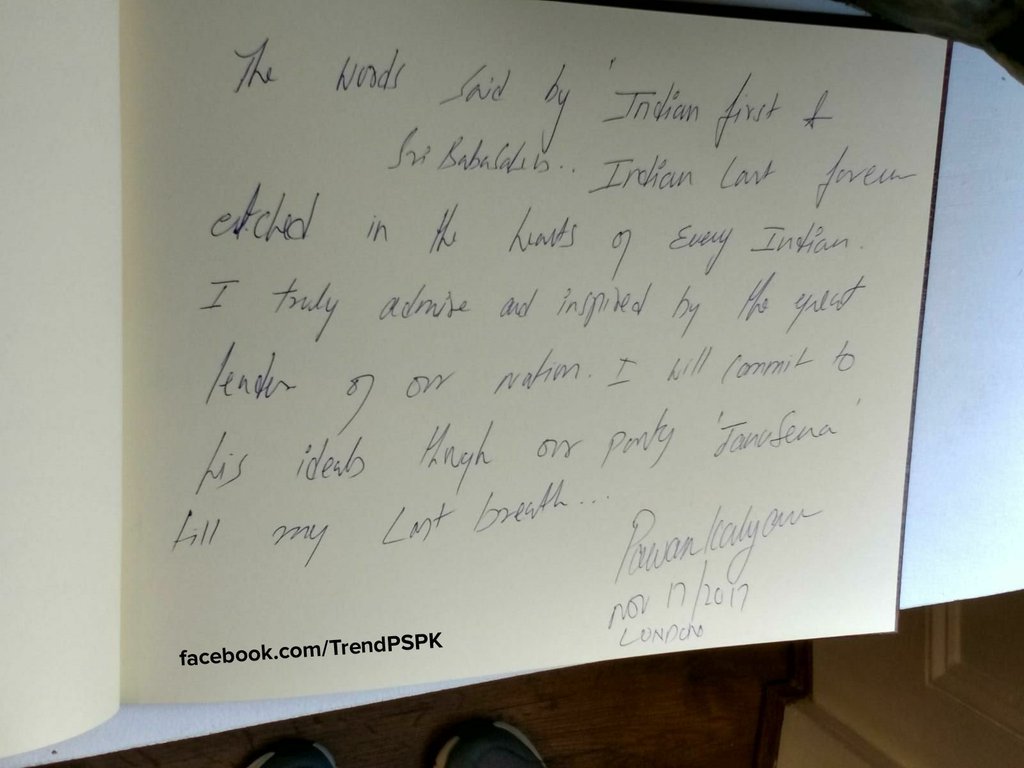 The words said by 'Indian first &
Sri Babasaheb.. Indian Last forever
etched in the hearts of Every Indian.
I truly admire and inspired by the great
leader of our nation. I will commit to
his ideals through our party 'JanaSena'
till my Last breath...
Pawan Kalyan
Nov 17/2017
LONDON
facebook.com/TrendPSPK